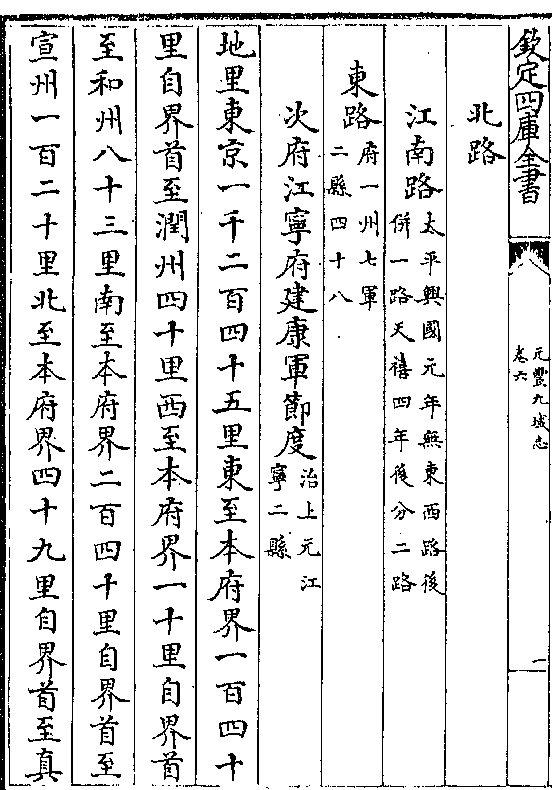 欽定四庫全書
元豐九域志
卷六
一
北路
江南路
太平興國元年無東西路後
併一路天禧四年後分二路
東路
府一州七軍
二縣四十八
次府江寧府建康軍節度
治上元江
寧二縣
地里東京一千二百四十五里東至本府界一百四十
里自界首至潤州四十里西至本府界一十里自界首
至和州八十三里南至本府界二百四十里自界首至
宣州一百二十里北至本府界四十九里自界首至真